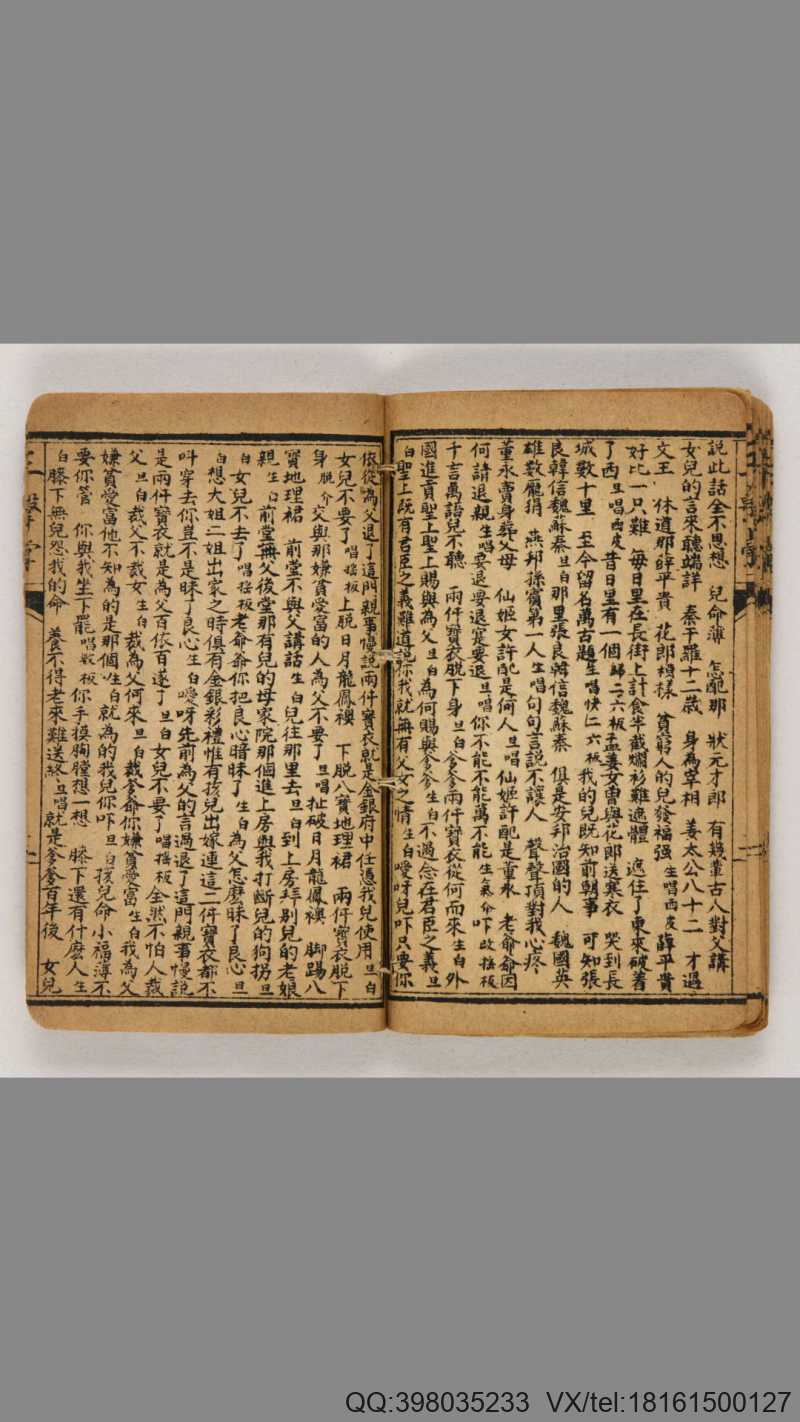 說此話全不思想　兒命薄　怎配那　狀元才郎　有幾輩古人對父講
女兒的言來聽端詳　秦干羅十二歲　身為宰相　姜太公八十二　才過
文王　休道那薛平貴　花郎模樣　貧窮人的兒發福强　生唱西皮　薛平貴
好比一只雞　每日里在長街上討食半截爛衫難遮體　遮住了東來破着
了西旦唱西皮昔日里有一個歸二六板孟姜女曾與花郎送寒衣　哭到長
城數十里　至今留名萬古題生唱快二六板我的兒既知前朝事　可知張
良韓信魏蘇秦旦白那里張良韓信魏蘇秦　俱是安邦治國的人　魏國英
雄數龐涓　燕邦孫賓第一人生唱句句言說不讓人　聲聲頂對我心疼
董永賣身葬父母　仙姬女許配是何人旦唱　仙姬許配是董永　老爺爺因
何請退親生唱要退要退定要退旦唱你不能不能萬不能生氣介吓故搖板
千言萬語兒不聽　兩件寶衣脫下身旦白爹爹兩件寶衣從何而來生白外
國進貢聖上聖上賜與為父旦白為何賜與爹爹生白不過念在君臣之義旦
白聖上既有君臣之義難道說你我就無有父女之情生白噯呀兒吓只要你
依從為父退了這門親事慢說兩件寶衣就是金銀府中任憑我兒使用旦白
女兒不要了唱搖板上脫日月龍鳳襖　下脫八寶地理裙　兩件寶衣脫下
身脫介交與那嫌貧愛富的人為父不要了旦唱扯破日月龍鳳襖　脚踢八
寶地理裙　前堂不與父講話生白兒往那里去旦白到上房拜別兒的老娘
親生白前堂無父後堂那有兒的母家院那個進上房與我打斷兒的狗拐旦
白女兒不去了唱搖板老爺爺你把良心暗昧了生白為父怎麽昧了良心旦
白想大姐二姐出家之時俱有金銀彩禮惟有孩兒出嫁連這二件寶衣都不
叫穿去你豈不是昧了良心生白噯呀先前為父的言過退了這門親事慢說
是兩件寶衣就是為父百依百遂了旦白女兒不要了唱搖板全然不怕人裁
父旦白裁父不裁女生白裁為父何來旦白裁爹爹你嫌貧愛富生白我為父
嫌貧愛富他不知為的是那個生白就為的我兒你吓旦白孩兒命小福薄不
要你管　你與我坐下罷唱搖板你手摸胸膛想一想　膝下還有什麽人生
白膝下無兒怨我的命　養不得老來難送終旦唱就是爹爹百年後　女兒
QQ:398035233 VX/tel:18161500127